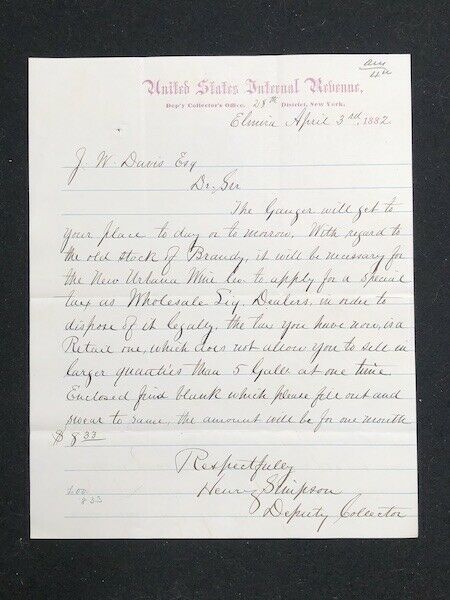 Ans
4th
United States Internal Revenue,
Dep'y Collector's Office, 28th District, New York.
Elmira April 3rd, 1882.
J. W. Davis Esq
Dr. Sir
The Gauger will get to
your place to day or to morrow. With regard to
the old stock of Brandy, it will be necessary for
the New Urbana Wine Co. to apply for a special
tax as Wholesale Liq. Dealers, in order to
dispose of it legally. the tax you have now, is a
Retail one, which does not allow you to sell in
larger quantities than 5 Galls at one time
Enclosed find blank which please fill out and
swear to same, the amount will be for one month
$ 8 33
Respectfully
Henry Simpson
Deputy Collector
8 33